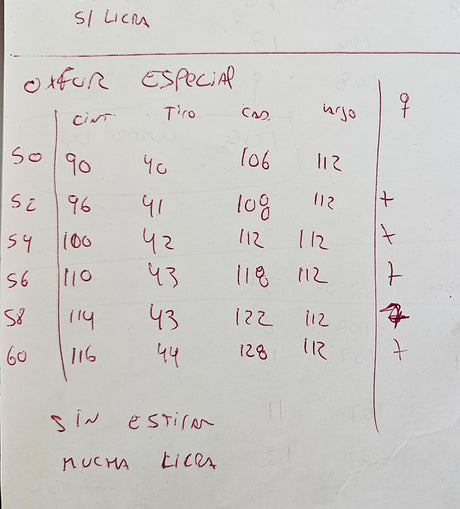 S/ LICRA
OXFUR ESPECIAL
CINT. TIRO CAD. LARGO
50 90 40 106 112
52 96 41 108 112 +
54 100 42 112 112 +
56 110 43 118 112 +
58 114 43 122 112
60 116 44 128 112 +
SIN ESTIRAR
MUCHA LICRA